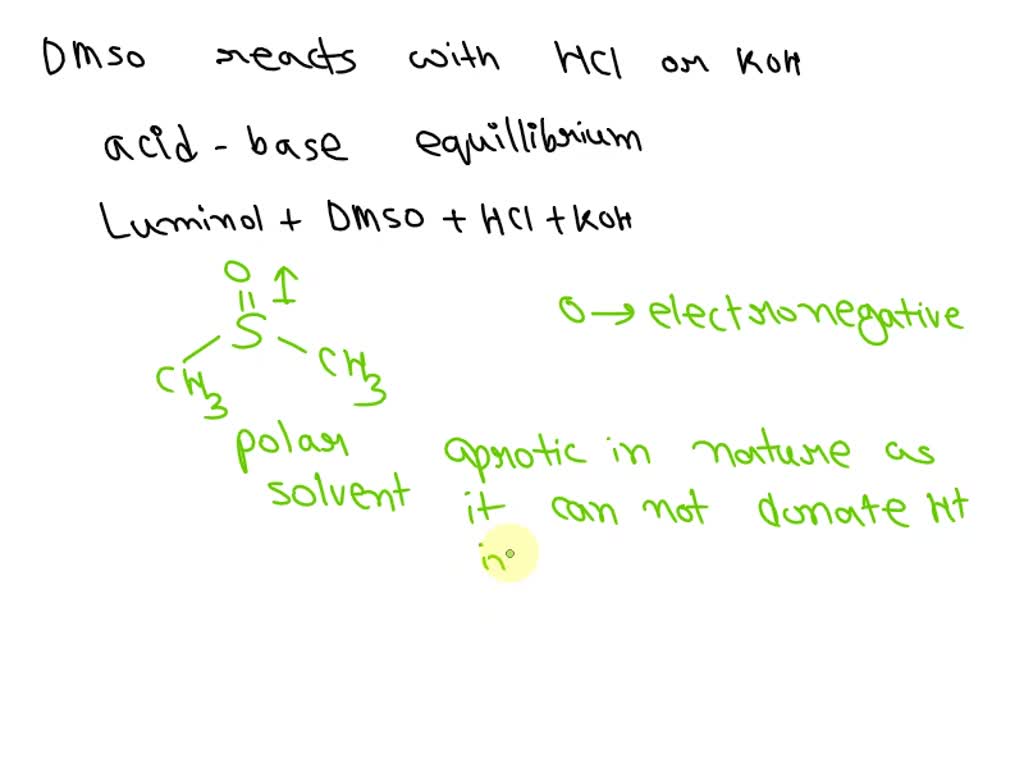 DMSO reacts with HCl or KOH
acid - base equillibrium
Luminol + DMSO + HCl + KOH
O
S
CH3
CH3
O → electronegative
polar
solvent
aprotic in nature as
it can not donate H+
in